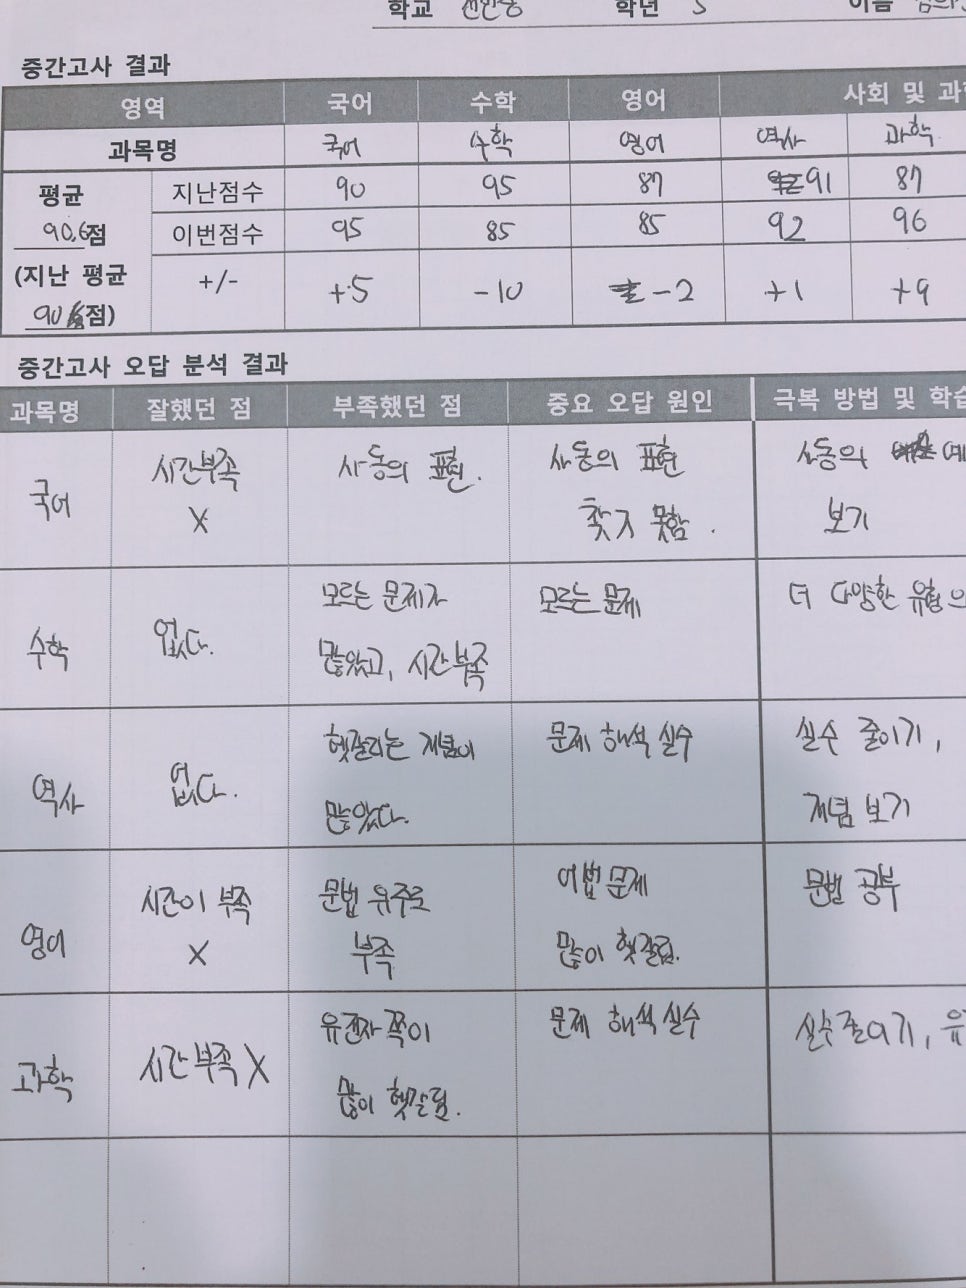 학교 학년 3 이름
중간고사 결과
영역 국어 수학 영어 사회 및 과학
과목명 국어 수학 영어 역사 과학
평균 90.6점 (지난 평균 90점)
지난점수 90 95 87 91 87
이번점수 95 85 85 92 96
+/- +5 -10 -2 +1 +9
중간고사 오답 분석 결과
과목명 잘했던 점 부족했던 점 중요 오답 원인 극복 방법 및 학습
국어
시간부족
X
사동의 표현.
사동의 표현
찾지 못함.
사동의 예
보기
수학
없다.
모르는 문제가
많았고, 시간 부족
모르는 문제
더 다양한 유형
역사
없다.
헷갈리는 개념이
많았다.
문제 해석 실수
실수 줄이기,
개념 보기
영어
시간이 부족
X
문법 위주로
부족
어법 문제
많이 헷갈림.
문법 공부
과학
시간 부족 X
유전자 쪽이
많이 헷갈림.
문제 해석 실수
실수 줄이기, 유